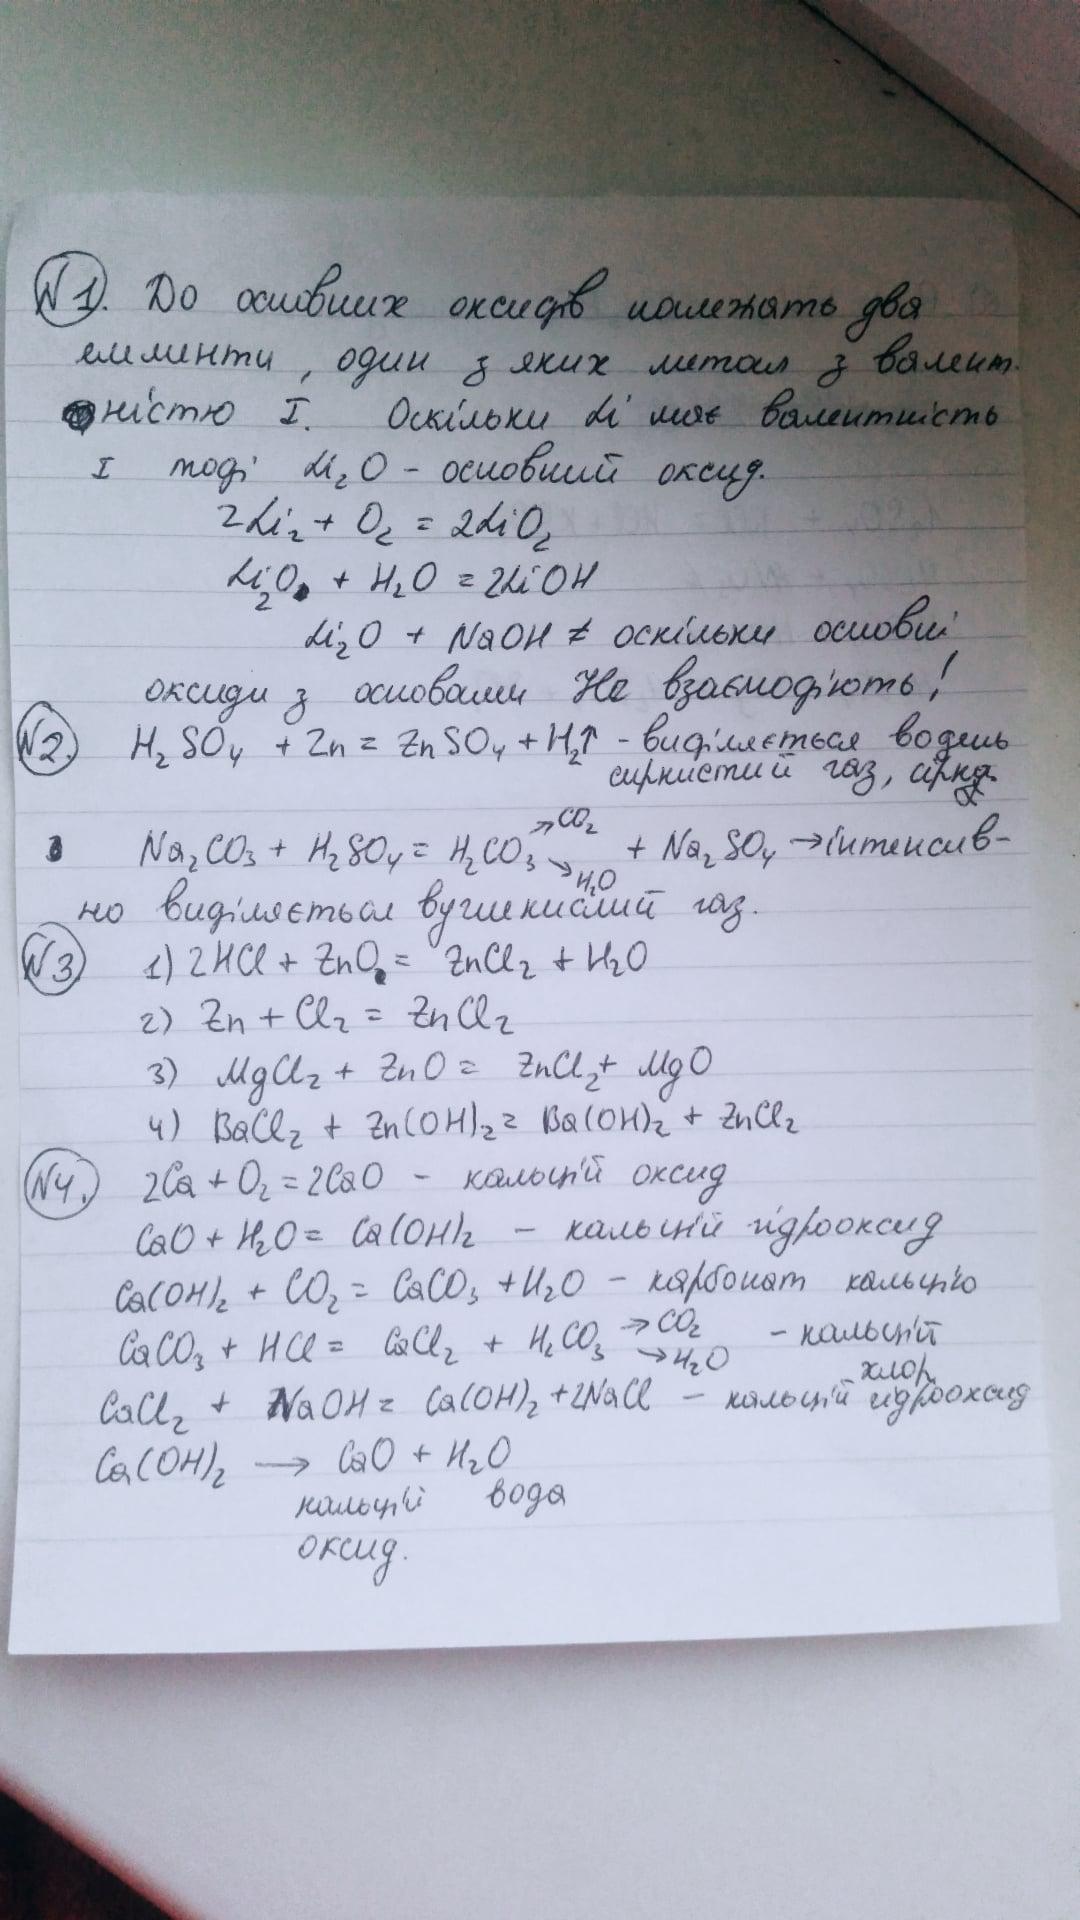 №1. До основних оксидів належать два
елементи, один з яких метал з валент-
ністю I. Оскільки Li має валентність
I тоді Li₂O - основний оксид.
2Li₂ + O₂ = 2LiO₂
Li₂O + H₂O = 2LiOH
Li₂O + NaOH ≠ оскільки основні
оксиди з основами Не взаємодіють!
№2. H₂SO₄ + Zn = ZnSO₄ + H₂↑ - виділяється водень
сирнистий газ, сірка
Na₂CO₃ + H₂SO₄ = H₂CO₃ →CO₂ →H₂O + Na₂SO₄ → інтенсив-
но виділяється вуглекислий газ.
№3 1) 2HCl + ZnO = ZnCl₂ + H₂O
2) Zn + Cl₂ = ZnCl₂
3) MgCl₂ + ZnO = ZnCl₂ + MgO
4) BaCl₂ + Zn(OH)₂ = Ba(OH)₂ + ZnCl₂
№4. 2Ca + O₂ = 2CaO - кальцій оксид
CaO + H₂O = Ca(OH)₂ - кальцій гідрооксид
Ca(OH)₂ + CO₂ = CaCO₃ + H₂O - карбонат кальцію
CaCO₃ + HCl = CaCl₂ + H₂CO₃ →CO₂ →H₂O - кальцій
хлор
CaCl₂ + NaOH = Ca(OH)₂ + 2NaCl - кальцій гідрооксид
Ca(OH)₂ → CaO + H₂O
кальцій вода
оксид.